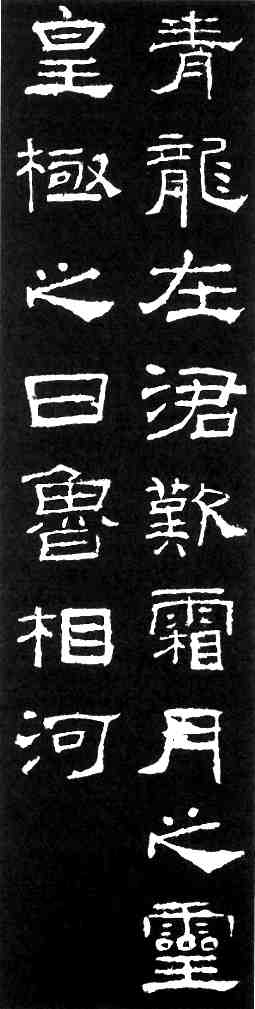 青龍在涒歎霜月之靈
皇極之日魯相河